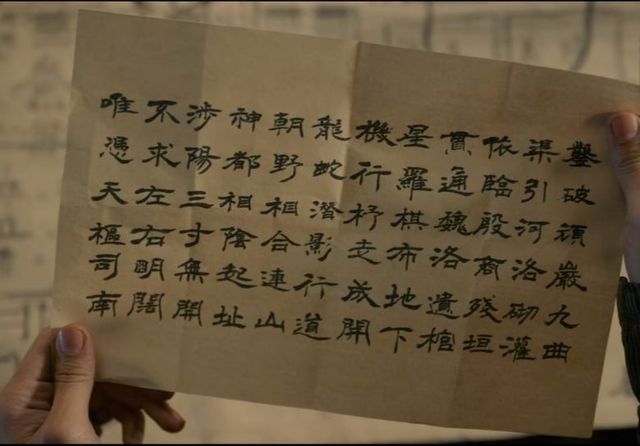 鑿破頑巖九曲
渠引河洛砌灌
依臨殷商殘垣
貫通魏洛遺棺
星羅棋布地下
機行杼走成開
龍蛇潛影行道
朝野相合連山
神都相陰起址
涉陽三寸無開
不求左右明闊
唯憑天樞司南